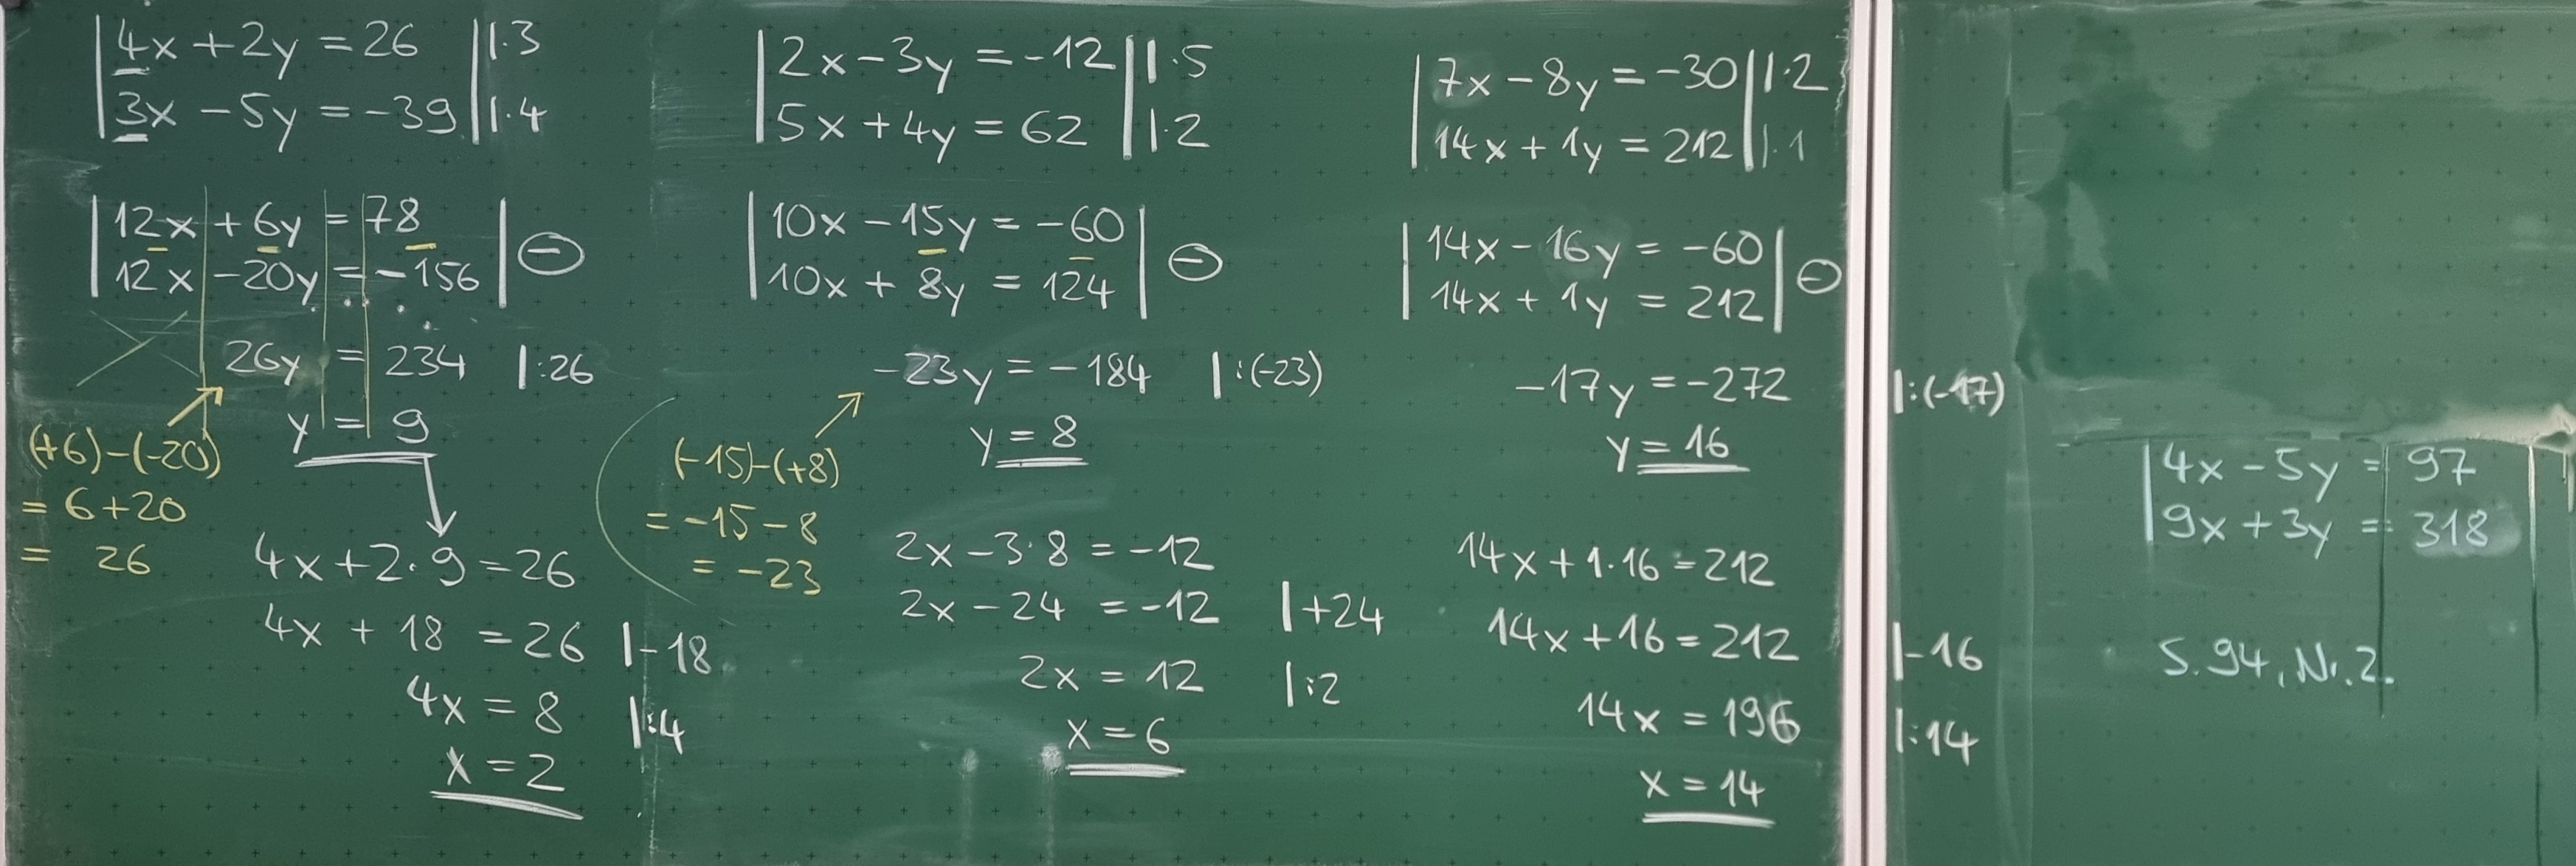 |4x + 2y = 26 | |·3
|3x - 5y = -39 | |·4
|12x + 6y = 78 |
|12x - 20y = -156 | ⊖
26y = 234 |:26
y = 9
(+6)-(-20)
= 6+20
= 26
4x + 2·9 = 26
4x + 18 = 26 |-18
4x = 8 |:4
x = 2
|2x - 3y = -12 | |·5
|5x + 4y = 62 | |·2
|10x - 15y = -60 |
|10x + 8y = 124 | ⊖
-23y = -184 |:(-23)
y = 8
(-15)-(+8)
= -15 - 8
= -23
2x - 3·8 = -12
2x - 24 = -12 |+24
2x = 12 |:2
x = 6
|7x - 8y = -30 | |·2
|14x + 1y = 212 | |·1
|14x - 16y = -60 |
|14x + 1y = 212 | ⊖
-17y = -272 |:(-17)
y = 16
14x + 1·16 = 212
14x + 16 = 212 |-16
14x = 196 |:14
x = 14
|4x - 5y = 97 |
|9x + 3y = 318 |
S. 94, Nr. 2.